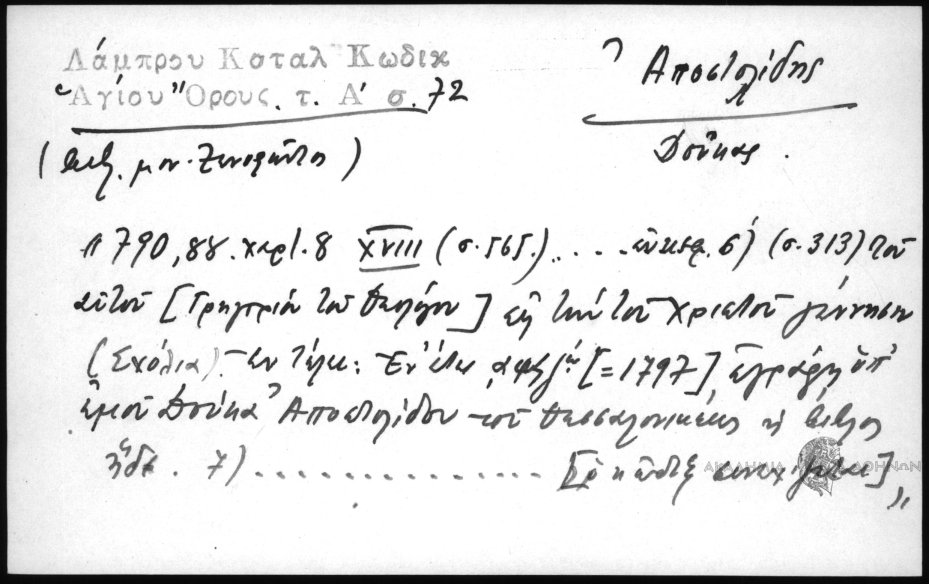 Λάμπρου Καταλ Κωδικ
Ἁγίου Ὄρους. τ. Α' σ. 72
Ἀποστολίδης
Δούκας.
(βιβ. μον. Ξενοφῶντος)
790,88. χαρτ. 8 XVIII (σ. 565.) .... 6) (σ. 313) Τοῦ
αὐτοῦ [Γρηγορίου τοῦ Θεολόγου] εἰς τὴν τοῦ Χριστοῦ γέννησιν
(Σχόλια). ἐν τέλει: Ἐν ἔτει ͵αψϟζῳ [=1797] ἐγράφη ὑπ'
ἐμοῦ Δούκα Ἀποστολίδου τοῦ Θεσσαλονικέως ἡ βίβλος
ἥδε. 7) ............... [Ὁ κῶδιξ συνεχίζεται]"
ΑΚΑΔΗΜΙΑ ΑΘΗΝΩΝ